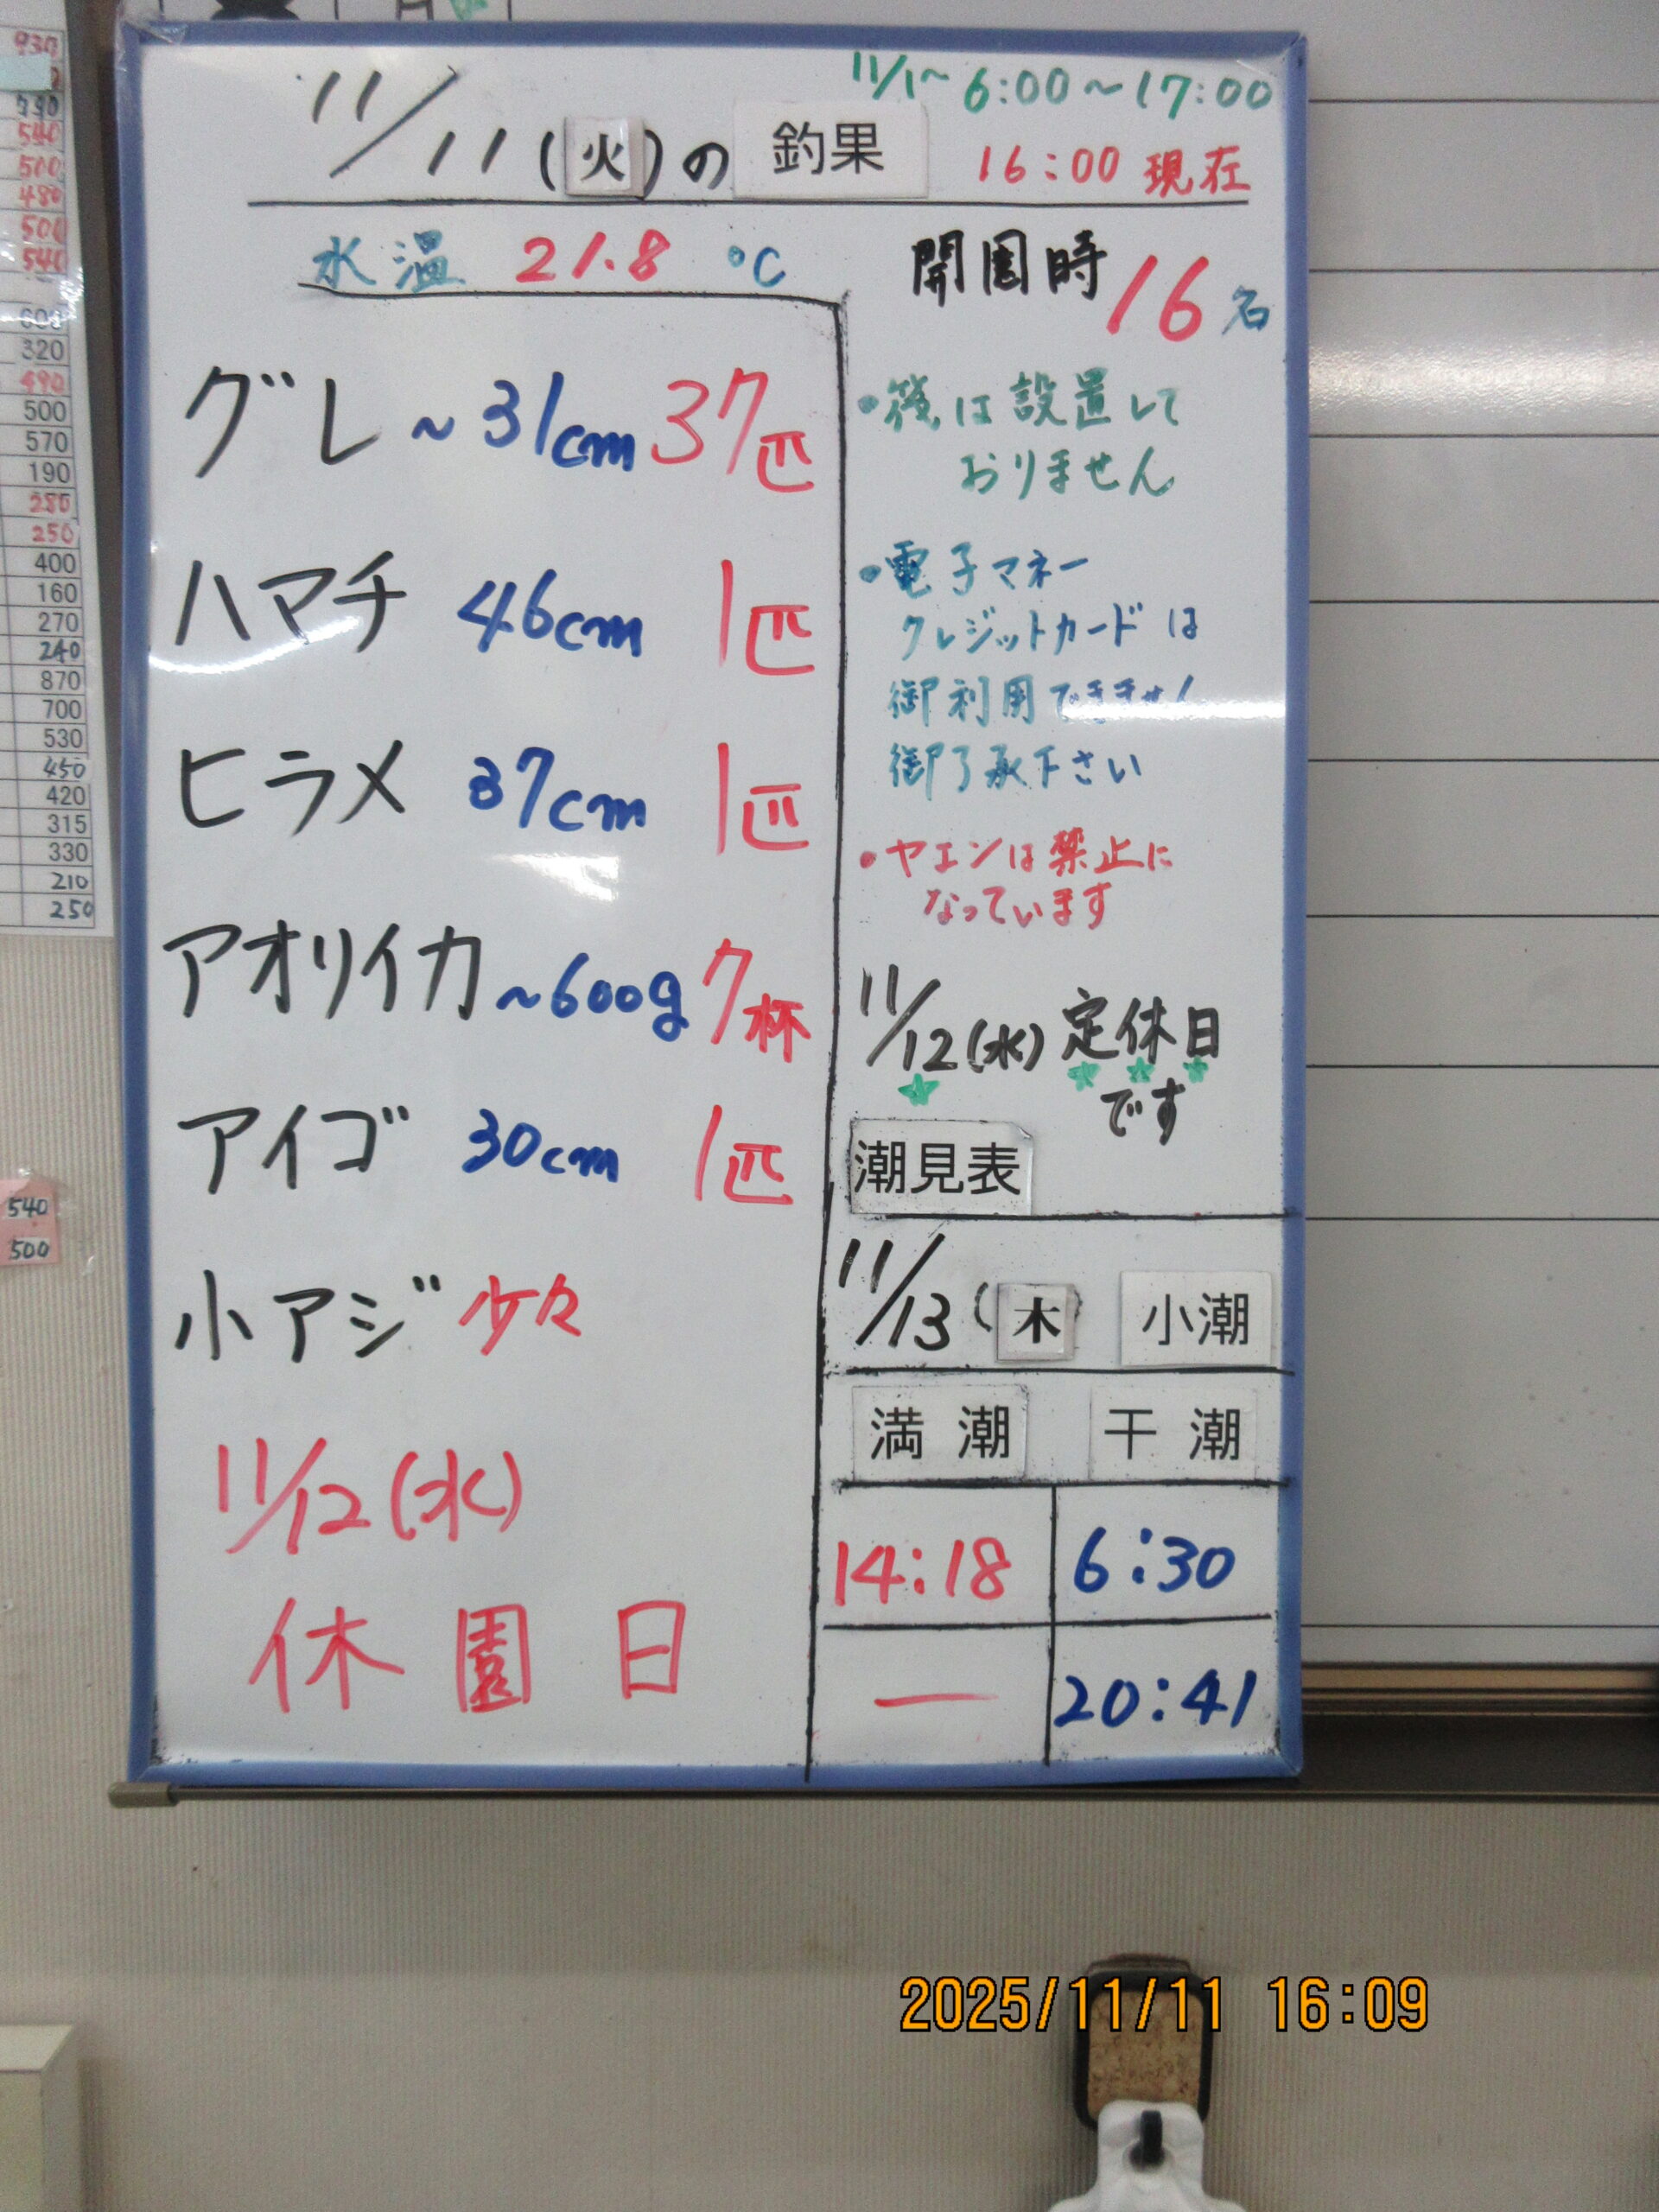 11/1~ 6:00~17:00
11/11(火)の 釣果 16:00 現在
水温 21.8 ℃
開園時 16名
グレ ~31cm 37匹
ハマチ 46cm 1匹
ヒラメ 37cm 1匹
アオリイカ ~600g 7杯
アイゴ 30cm 1匹
小アジ 少々
11/12(水)
休園日
・筏は設置して
おりません
・電子マネー
クレジットカードは
御利用できません
御了承下さい
・ヤエンは禁止に
なっています
11/12(水) 定休日
です
潮見表
11/13(木) 小潮
満潮 干潮
14:18 6:30
— 20:41
930
790
540
500
480
500
540
600
320
490
500
570
190
280
250
400
160
270
240
870
700
530
450
420
315
330
210
250
540
500
2025/11/11 16:09